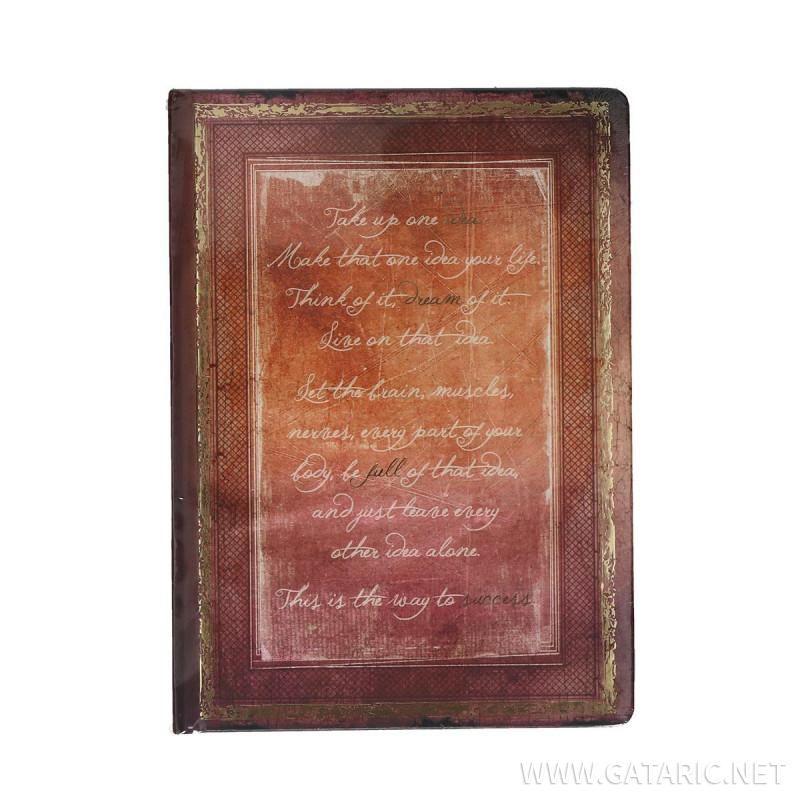 Take up one idea
Make that one idea your life.
Think of it, dream of it.
Live on that idea.
Let the brain, muscles,
nerves, every part of your
body, be full of that idea,
and just leave every
other idea alone.
This is the way to success.
WWW.GATARIC.NET